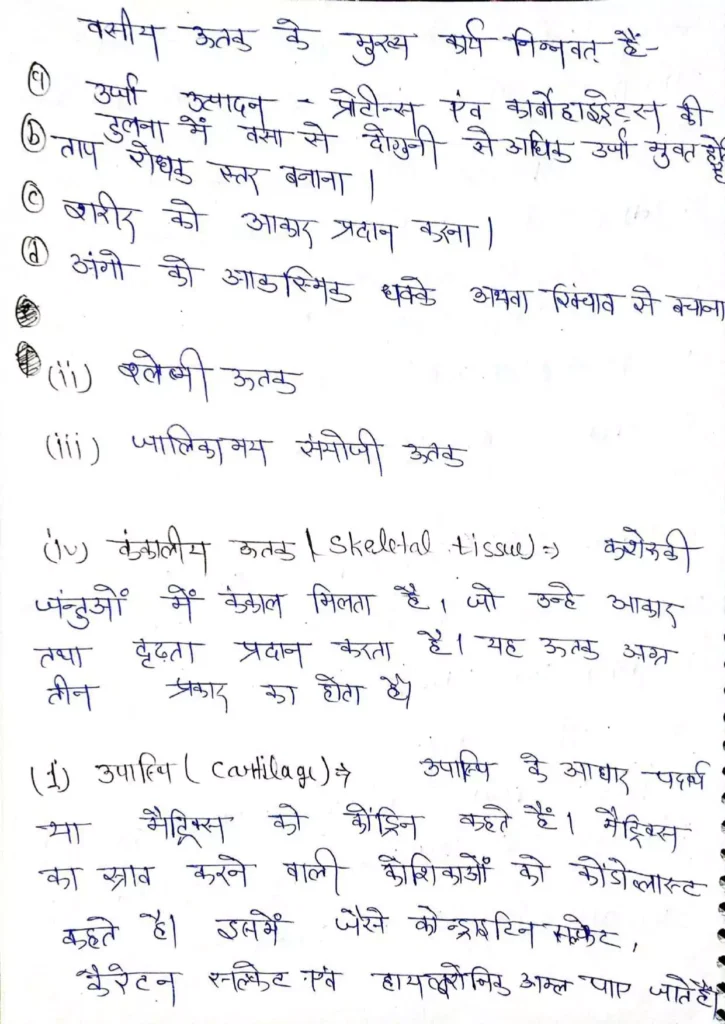 वसीय ऊतक के मुख्य कार्य निम्नवत् हैं-
(a) उर्जा उत्पादन - प्रोटीन्स एंव कार्बोहाइड्रेट्स की
तुलना में वसा से दोगुनी से अधिक उर्जा मुक्त होती है
(b) ताप रोधक स्तर बनाना।
(c) शरीर को आकार प्रदान करना।
(d) अंगो को आकस्मिक धक्के अथवा खिंचाव से बचाना
(ii) श्लेष्मी ऊतक
(iii) जालिकामय संयोजी ऊतक
(iv) कंकालीय ऊतक (Skeletal tissue)⇒ कशेरुकी
जन्तुओं में कंकाल मिलता है, जो उन्हे आकार
तथा दृढ़ता प्रदान करता है। यह ऊतक अग्र
तीन प्रकार का होता है।
(1) उपास्थि (Cartilage)⇒ उपास्थि के आधार पदार्थ
या मैट्रिक्स को कोंड्रिन कहते हैं। मैट्रिक्स
का स्राव करने वाली कोशिकाओं को कोंडोब्लास्ट
कहते है। इसमें जैसे कोन्ड्राइटिन सल्फेट,
कैरेटन सल्फेट एंव हायलुरोनिक अम्ल पाए जाते है।